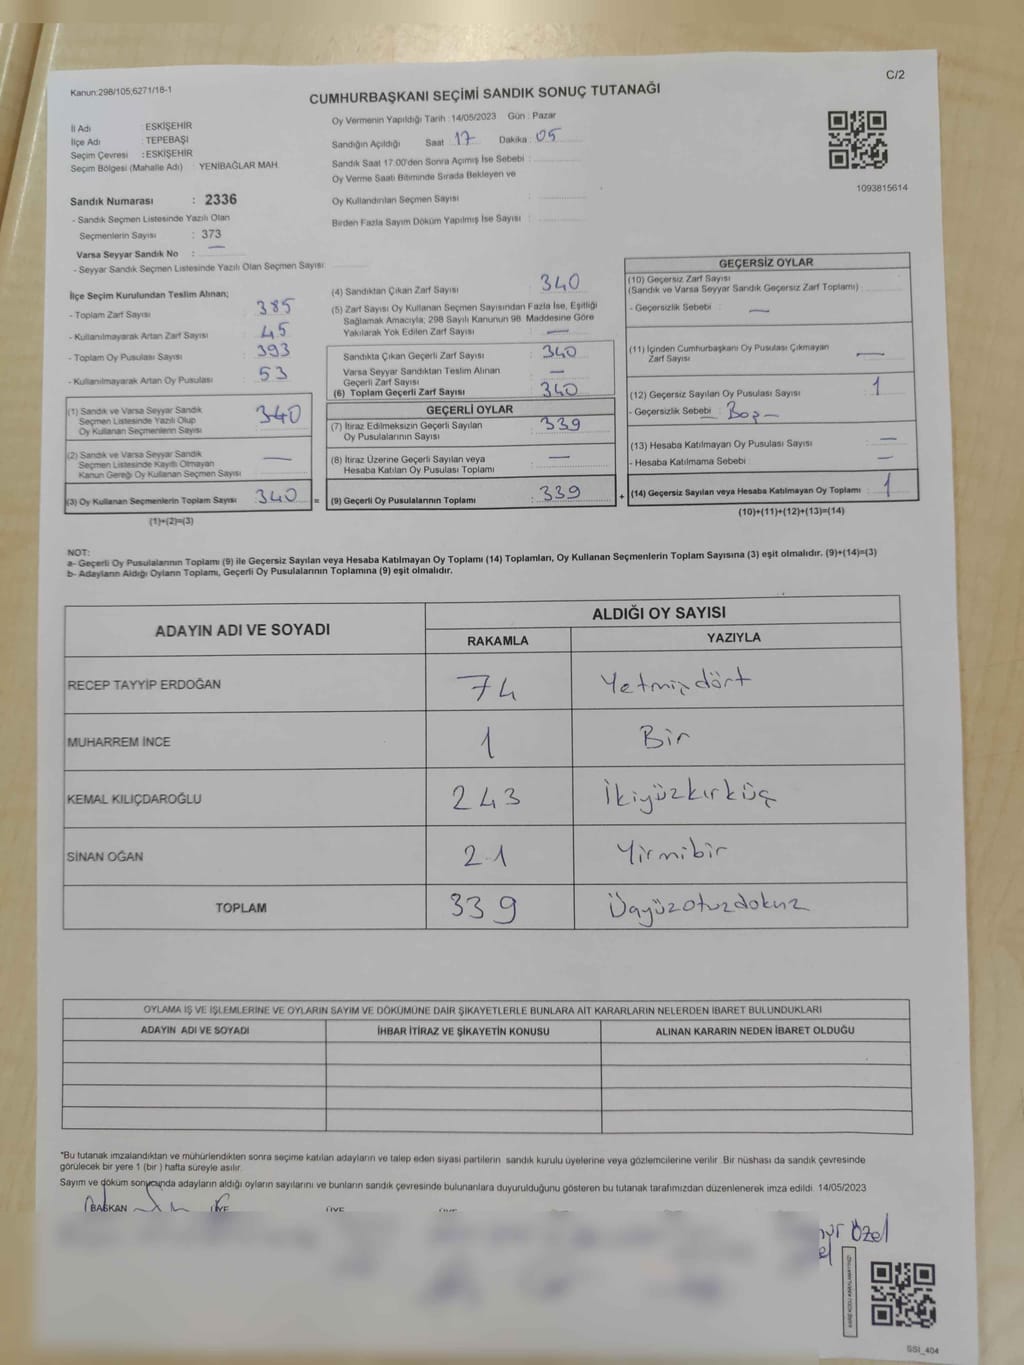 C/2
Kanun:298/105,6271/18-1
CUMHURBAŞKANI SEÇİMİ SANDIK SONUÇ TUTANAĞI
İl Adı : ESKİŞEHİR
İlçe Adı : TEPEBAŞI
Seçim Çevresi : ESKİŞEHİR
Seçim Bölgesi (Mahalle Adı) : YENİBAĞLAR MAH.
Oy Vermenin Yapıldığı Tarih : 14/05/2023 Gün : Pazar
Sandığın Açıldığı Saat 17 Dakika : 05
Sandık Saat 17:00'den Sonra Açımış İse Sebebi :
Oy Verme Saati Bitiminde Sırada Bekleyen ve
Oy Kullandırılan Seçmen Sayısı :
Birden Fazla Sayım Döküm Yapılmış İse Sayısı :
1093815614
Sandık Numarası : 2336
- Sandık Seçmen Listesinde Yazılı Olan
Seçmenlerin Sayısı : 373
Varsa Seyyar Sandık No : —
- Seyyar Sandık Seçmen Listesinde Yazılı Olan Seçmen Sayısı:
İlçe Seçim Kurulundan Teslim Alınan;
- Toplam Zarf Sayısı : 385
- Kullanılmayarak Artan Zarf Sayısı : 45
- Toplam Oy Pusulası Sayısı : 393
- Kullanılmayarak Artan Oy Pusulası : 53
(1) Sandık ve Varsa Seyyar Sandık
Seçmen Listesinde Yazılı Olup
Oy Kullanan Seçmenlerin Sayısı : 340
(2) Sandık ve Varsa Seyyar Sandık
Seçmen Listesinde Kayıtlı Olmayan
Kanun Gereği Oy Kullanan Seçmen Sayısı : —
(3) Oy Kullanan Seçmenlerin Toplam Sayısı : 340 =
(1)+(2)=(3)
(4) Sandıktan Çıkan Zarf Sayısı : 340
(5) Zarf Sayısı Oy Kullanan Seçmen Sayısından Fazla İse, Eşitliği
Sağlamak Amacıyla; 298 Sayılı Kanunun 98. Maddesine Göre
Yakılarak Yok Edilen Zarf Sayısı : —
Sandıkta Çıkan Geçerli Zarf Sayısı : 340
Varsa Seyyar Sandıktan Teslim Alınan
Geçerli Zarf Sayısı : —
(6) Toplam Geçerli Zarf Sayısı : 340
GEÇERLİ OYLAR
(7) İtiraz Edilmeksizin Geçerli Sayılan
Oy Pusulalarının Sayısı : 339
(8) İtiraz Üzerine Geçerli Sayılan veya
Hesaba Katılan Oy Pusulası Toplamı : —
(9) Geçerli Oy Pusulalarının Toplamı : 339 +
GEÇERSİZ OYLAR
(10) Geçersiz Zarf Sayısı
(Sandık ve Varsa Seyyar Sandık Geçersiz Zarf Toplamı) :
- Geçersizlik Sebebi : —
(11) İçinden Cumhurbaşkanı Oy Pusulası Çıkmayan
Zarf Sayısı : —
(12) Geçersiz Sayılan Oy Pusulası Sayısı : 1
- Geçersizlik Sebebi : Boş
(13) Hesaba Katılmayan Oy Pusulası Sayısı : —
- Hesaba Katılmama Sebebi : —
(14) Geçersiz Sayılan veya Hesaba Katılmayan Oy Toplamı : 1
(10)+(11)+(12)+(13)=(14)
NOT:
a- Geçerli Oy Pusulalarının Toplamı (9) ile Geçersiz Sayılan veya Hesaba Katılmayan Oy Toplamı (14) Toplamları, Oy Kullanan Seçmenlerin Toplam Sayısına (3) eşit olmalıdır. (9)+(14)=(3)
b- Adayların Aldığı Oyların Toplamı, Geçerli Oy Pusulalarının Toplamına (9) eşit olmalıdır.
ADAYIN ADI VE SOYADI ALDIĞI OY SAYISI
RAKAMLA YAZIYLA
RECEP TAYYİP ERDOĞAN 74 Yetmişdört
MUHARREM İNCE 1 Bir
KEMAL KILIÇDAROĞLU 243 İkiyüzkırküç
SİNAN OĞAN 21 Yirmibir
TOPLAM 339 Üçyüzotuzdokuz
OYLAMA İŞ VE İŞLEMLERİNE VE OYLARIN SAYIM VE DÖKÜMÜNE DAİR ŞİKAYETLERLE BUNLARA AİT KARARLARIN NELERDEN İBARET BULUNDUKLARI
ADAYIN ADI VE SOYADI İHBAR İTİRAZ VE ŞİKAYETİN KONUSU ALINAN KARARIN NEDEN İBARET OLDUĞU
*Bu tutanak imzalandıktan ve mühürlendikten sonra seçime katılan adayların ve talep eden siyasi partilerin sandık kurulu üyelerine veya gözlemcilerine verilir .Bir nüshası da sandık çevresinde
görülecek bir yere 1 (bir ) hafta süreyle asılır.
Sayım ve döküm sonucunda adayların aldığı oyların sayılarını ve bunların sandık çevresinde bulunanlara duyurulduğunu gösteren bu tutanak tarafımızdan düzenlenerek imza edildi. 14/05/2023
BAŞKAN ÜYE ÜYE ÜYE
Özel
SSI_404